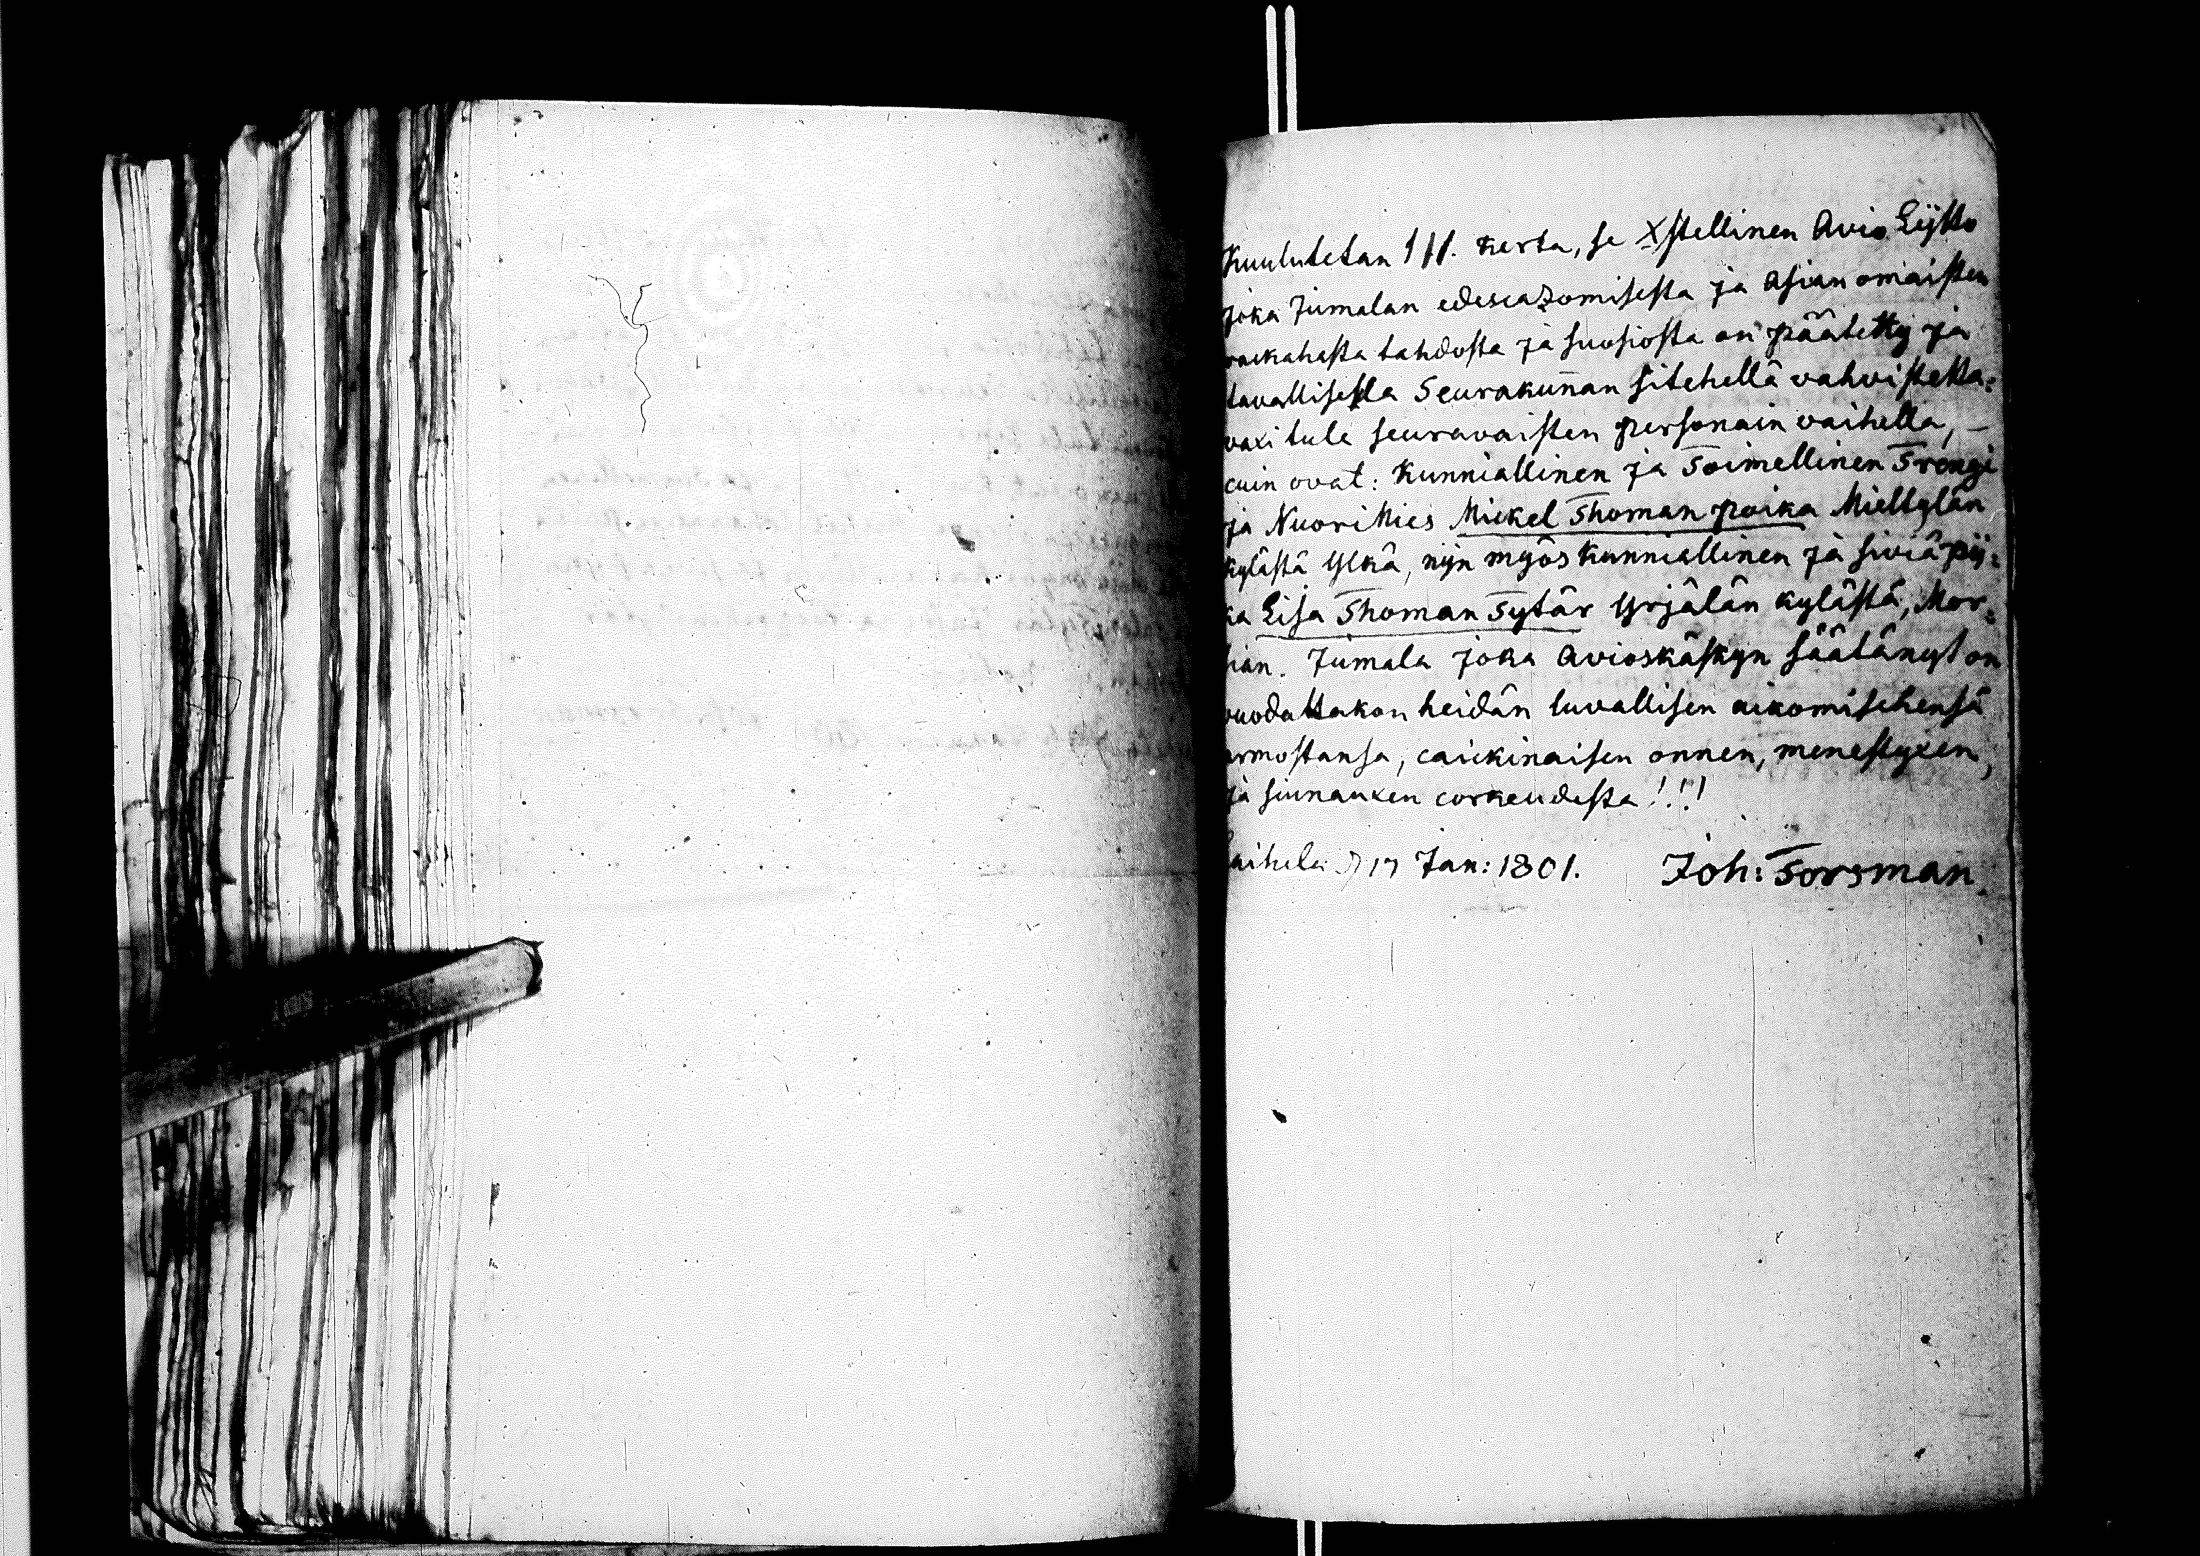 Kuulutetan III. kerta, se Xstellinen Avio Lijtto
joka Jumalan edescazomisesta ja Asian omaisten
rackahasta tahdosta ja suosiosta on päätetty ja
tavallisesta Seurakunnan sitehellä vahvistetta:
vaxi tule seuravaisten personain vaihella, —
cuin ovat: Kunniallinen ja Toimellinen Trengi
ja Nuori Mies Mickel Thoman poika Mieltylän
kylästä Ylkä, nijn myös Kunniallinen ja siviä pij:
ka Lisa Thoman Tytär Yrjälän kylästä, Mor:
sian. Jumala joka Avioskäskyn säätänyt on
vuodattakon heidän luvallisen aikomisehensa
armostansa, caickinaisen onnen, menestyxen,
ja siunauxen corkeudesta!!!
Laihela D 17 Jan: 1801. Joh: Forsman.